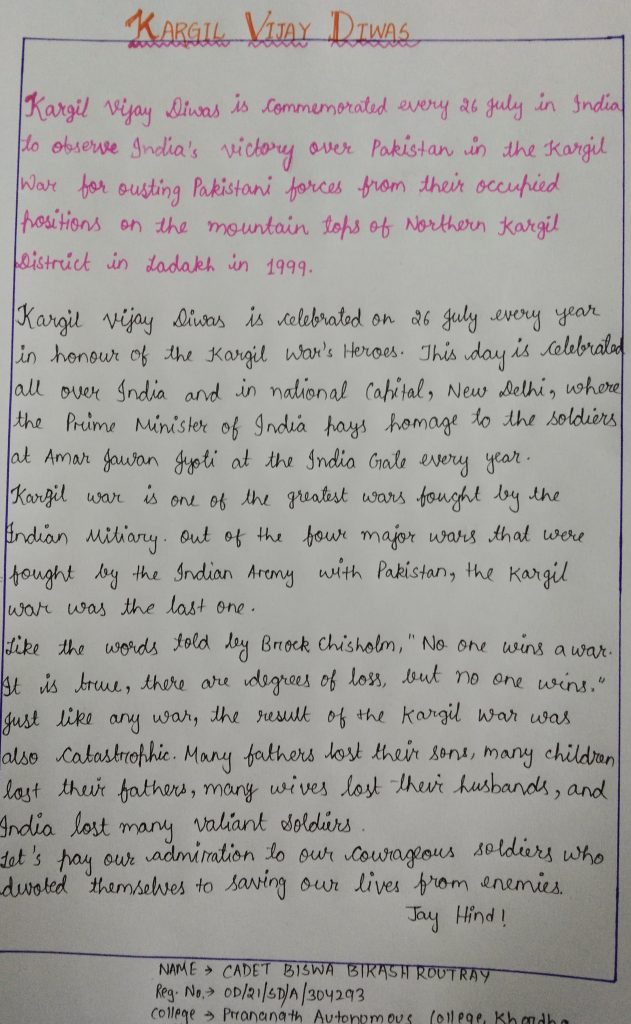 KARGIL VIJAY DIWAS
Kargil Vijay Diwas is commemorated every 26 July in India
to observe India's victory over Pakistan in the Kargil
War for ousting Pakistani forces from their occupied
positions on the mountain tops of Northern Kargil
District in Ladakh in 1999.
Kargil Vijay Diwas is celebrated on 26 July every year
in honour of the Kargil War's Heroes. This day is celebrated
all over India and in national Capital, New Delhi, where
the Prime Minister of India pays homage to the soldiers
at Amar Jawan Jyoti at the India Gate every year.
Kargil war is one of the greatest wars fought by the
Indian Mitiary. out of the four major wars that were
fought by the Indian Army with Pakistan, the Kargil
war was the last one.
Like the words told by Brock Chisholm, "No one wins a war.
It is true, there are degrees of loss, but no one wins."
Just like any war, the result of the Kargil war was
also Catastrophic. Many fathers lost their sons, many children
lost their fathers, many wives lost their husbands, and
India lost many valiant soldiers.
Let's pay our admiration to our courageous soldiers who
devoted themselves to saving our lives from enemies.
Jay Hind!
NAME → CADET BISWA BIKASH ROUTRAY
Reg. No. → OD/21/SD/A/304293
College → Prananath Autonomous College, Khordha